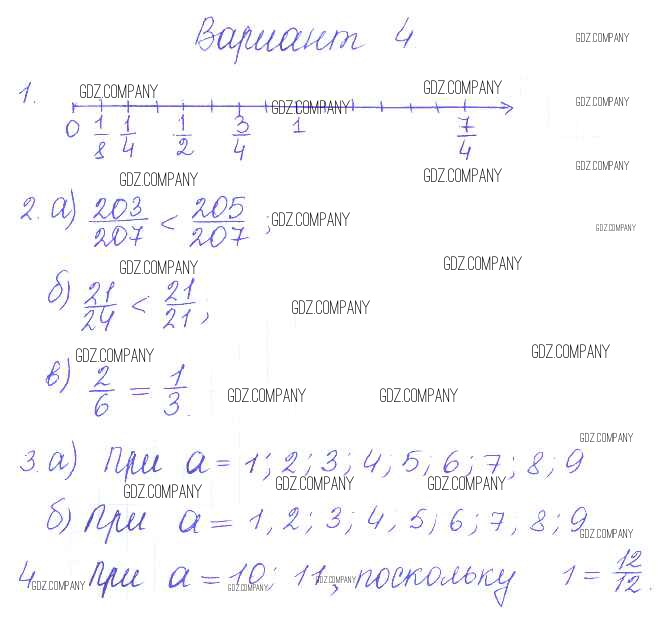 Вариант 4
GDZ.COMPANY
1.
GDZ.COMPANY GDZ.COMPANY GDZ.COMPANY GDZ.COMPANY
0 1/8 1/4 1/2 3/4 1 7/4
GDZ.COMPANY GDZ.COMPANY GDZ.COMPANY
2. а) 203/207 < 205/207 ;
GDZ.COMPANY GDZ.COMPANY
GDZ.COMPANY GDZ.COMPANY
б) 21/24 < 21/21 ;
GDZ.COMPANY
GDZ.COMPANY GDZ.COMPANY
в) 2/6 = 1/3 .
GDZ.COMPANY GDZ.COMPANY
GDZ.COMPANY
3. а) При а = 1; 2; 3; 4; 5; 6; 7; 8; 9
GDZ.COMPANY GDZ.COMPANY GDZ.COMPANY
б) При а = 1, 2; 3; 4; 5; 6; 7; 8; 9
GDZ.COMPANY
4. При а = 10; 11, поскольку 1 = 12/12 .
GDZ.COMPANY GDZ.COMPANY GDZ.COMPANY